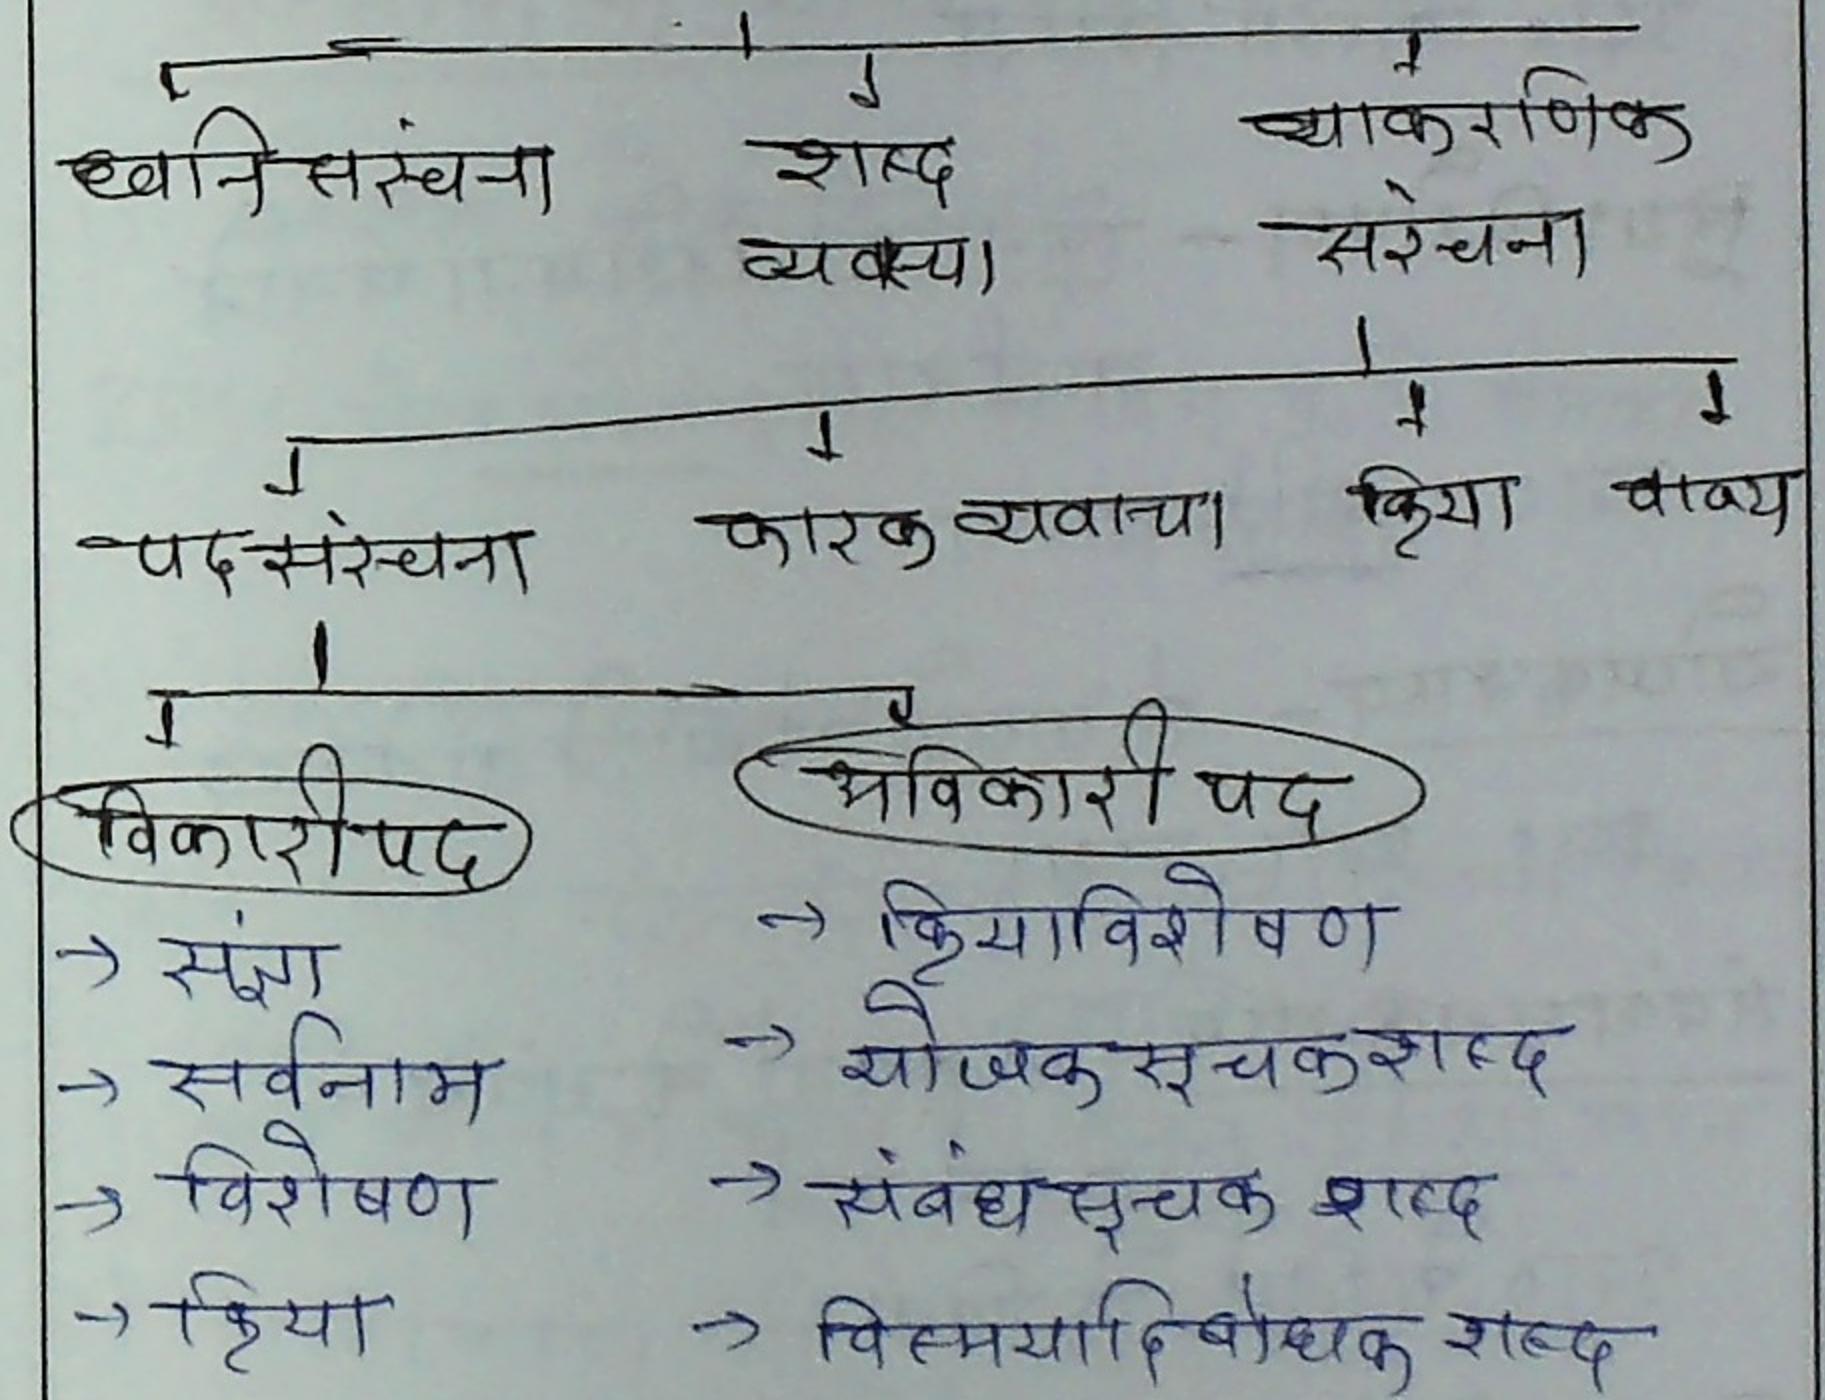 ध्वनि संरचना
शब्द
व्यवस्था
व्याकरणिक
संरचना
पद संरचना
कारक व्यवस्था
क्रिया
वाक्य
विकारी पद
अविकारी पद
→ संज्ञा
→ सर्वनाम
→ विशेषण
→ क्रिया
→ क्रियाविशेषण
→ योजक सूचक शब्द
→ संबंध सूचक शब्द
→ विस्मयादिबोधक शब्द